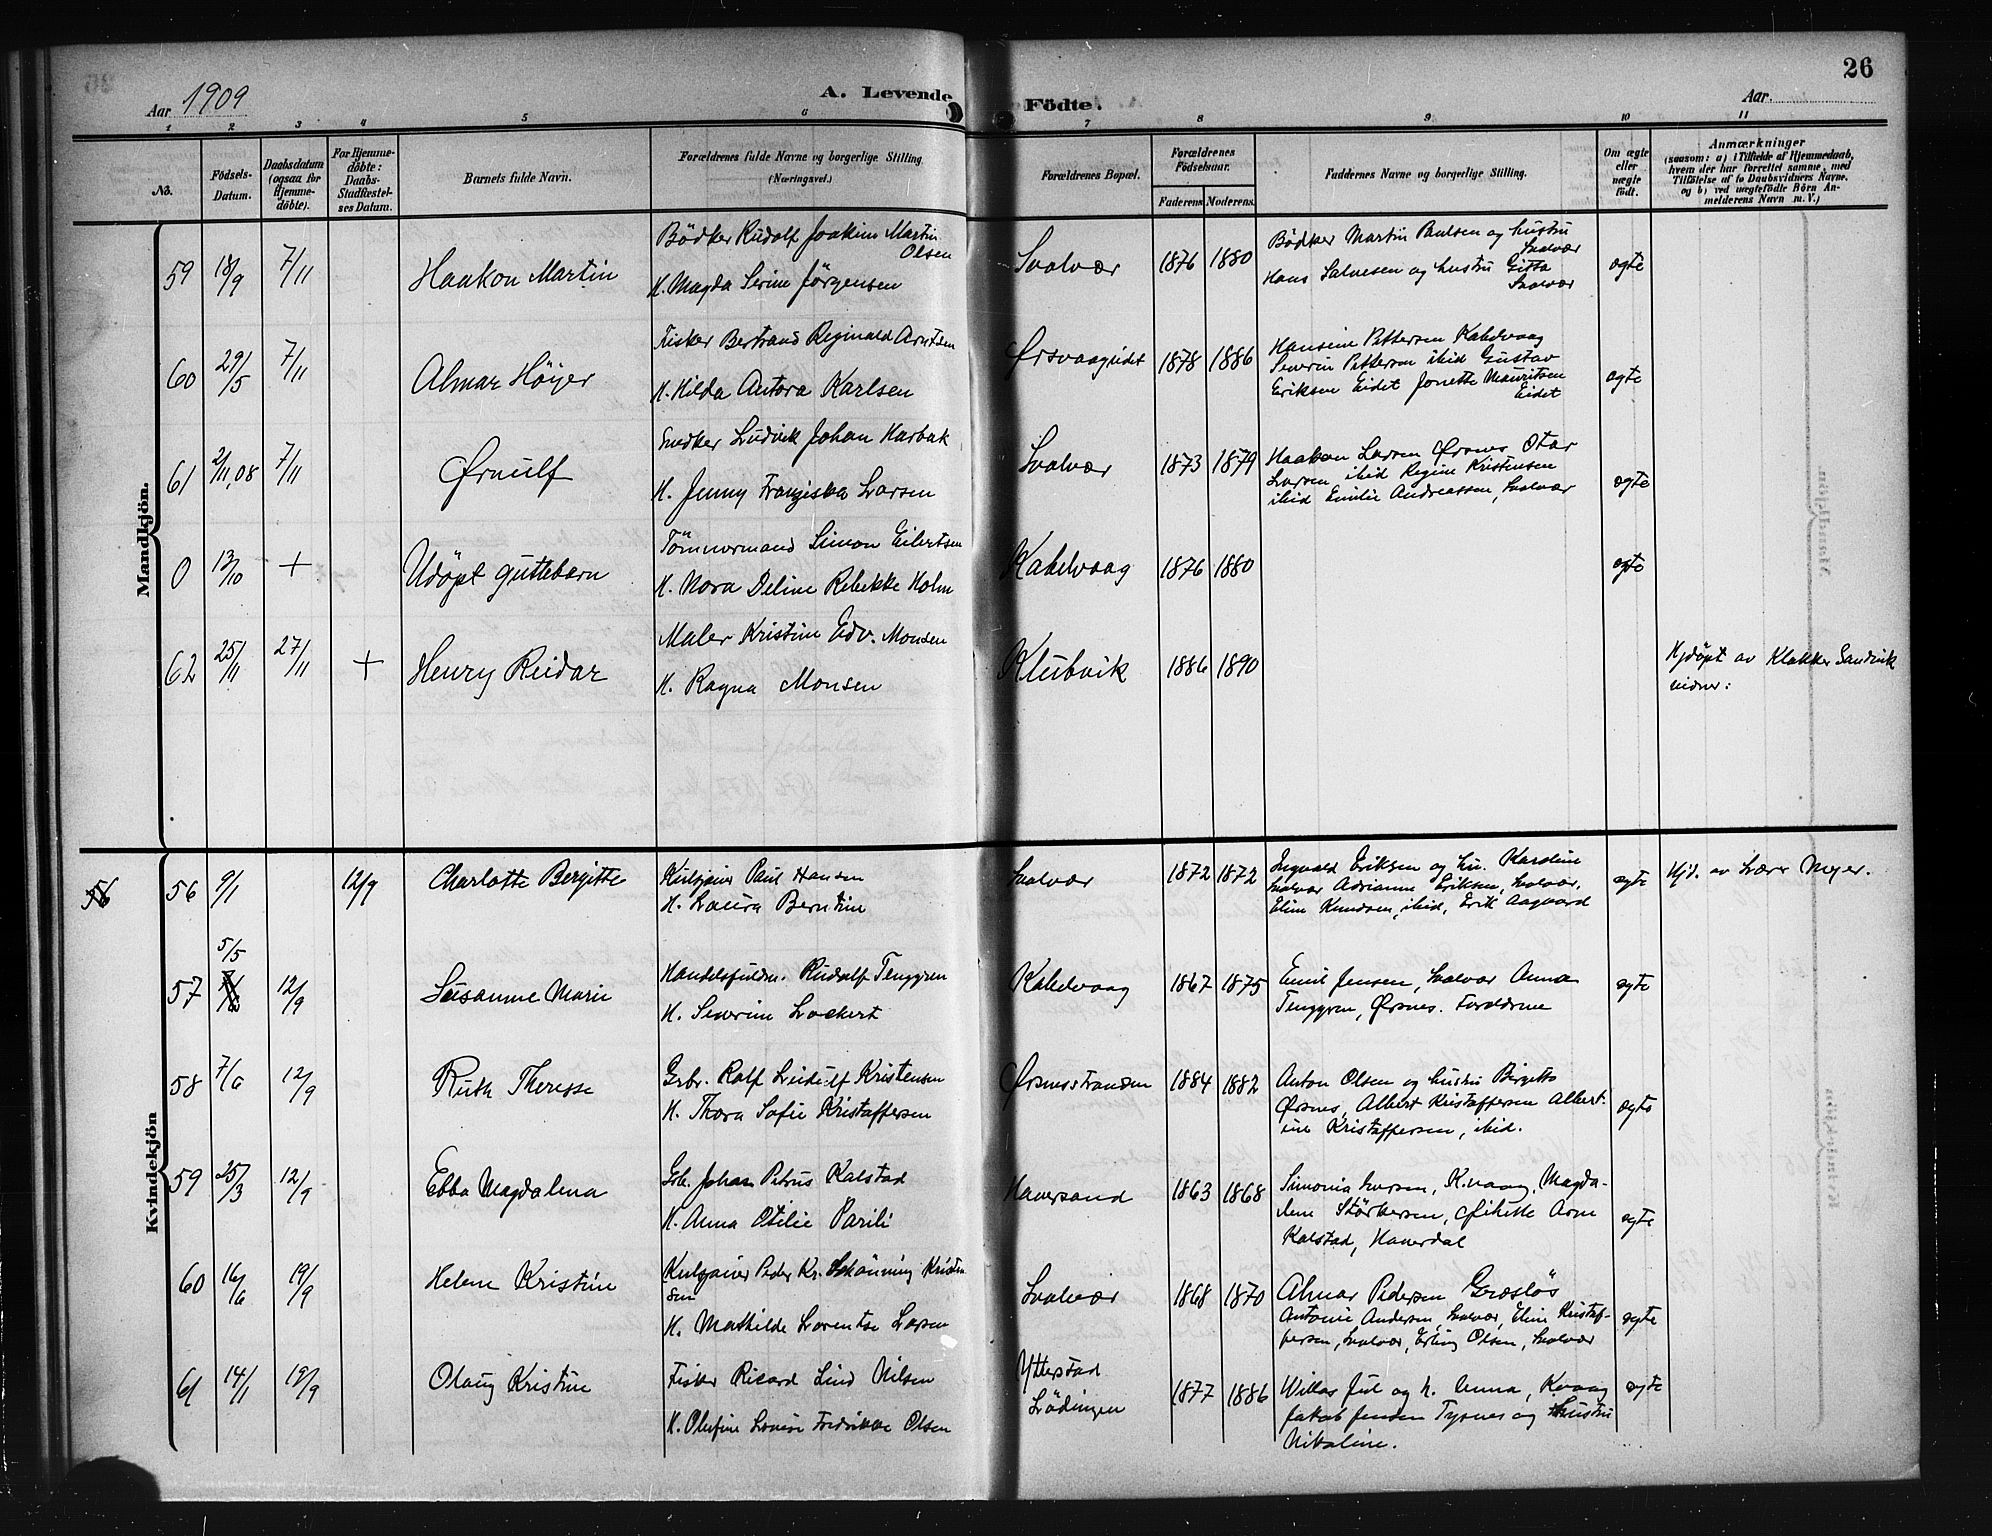 26
Aar 1909
A. Levende Födte.
Aar.
1 2 3 4 5 6 7 8 9 10 11
No.
Födsels-Datum.
Daabsdatum (ogsaa for Hjemme-döbte).
For Hjemme-döbte: Daabs-Stadfæstel-ses Datum.
Barnets fulde Navn.
Forældrenes fulde Navne og borgerlige Stilling. (Næringsvei.)
Forældrenes Bopæl.
Forældrenes Födselsaar.
Faderens. Moderens.
Faddernes Navne og borgerlige Stilling.
Om ægte eller uægte født.
Anmærkninger
(saasom: a) i Tilfælde af Hjemmedaab, hvem der har forrettet samme, med Tilföielse af to Daabsvidners Navne, og b) ved uægtefödte Börn An-melderens Navn m. V.)
Mandkjön.
59 18/9 7/11 Haakon Martin
Bödker Rudolf Joakim Martin Olsen
H. Magda Serine Jörgensen
Svolvær 1876 1880
Bödker Martin Paulsen og hustru Svolvær
Hans Salvesen og hustru Gitta Svolvær
ægte
60 29/5 7/11 Almar Höyer
Fisker Bertrand Reginald Arntsen
H. Hilda Antora Karlsen
Ørsvaageidet 1878 1886
Hansine Pettersen Kabelvaag
Severin Pettersen ibid Gustav
Eriksen Eidet Jonette Mauritsen
Eidet
ægte
61 2/11,08 7/11 Ørnulf
Snedker Ludvik Johan Harbak
H. Jenny Franziska Larsen
Svolvær 1873 1879
Haakon Larsen Ørsnes Otar
Larsen ibid Regine Kristensen
ibid Emilie Andreassen, Svolvær
ægte
0 13/10 + Udöpt guttebarn
Tömmermand Simon Eilertsen
H. Nora Deline Rebekke Holm
Kabelvaag 1876 1880
ægte
62 25/11 27/11 + Henry Reidar
Maler Kristian Edv. Monsen
H. Ragna Monsen
Klubvik 1886 1890
Hjdöpt av Klokker Sandvik
vidner:
Kvindekjön
56 56 9/1 12/9 Charlotte Bergitte
Paul Hansen
H. Laura Berntine
Svolvær 1872 1872
Ingvald Eriksen og hu. Karoline
Svolvær Adrianne Eriksen, Svolvær,
Eline Knudsen, ibid, Erik Aagaard
ægte
Hjd. av Lærer Meyer.
57 5/5 12/9 Susanne Marie
Handelsfuldm. Rudolf Tenggren
H. Severine Lockert
Kabelvaag 1867 1875
Emil Jensen, Svolvær Anna
Tenggren, Ørsnes. Forældrene
ægte
58 7/6 12/9 Ruth Therese
Grbr. Rolf Leidulf Kristensen
H. Thora Sofie Kristoffersen
Ørsnesstranden 1884 1882
Anton Olsen og hustru Birgitte
Ørsnes, Albert Kristoffersen Albert-
ine Kristoffersen, ibid.
ægte
59 25/3 12/9 Ebba Magdalena
Grb. Johan Petrus Kalstad
H. Anna Otilie Parili
Haversand 1863 1868
Simonia Iversen, K.vaag, Magda-
lene Störkersen, Arne
Kalstad, Haverdal
ægte
60 16/6 19/9 Helene Kristine
Peder Kr. Schönning Kristen
sen
H. Mathilde Lorentse Larsen
Svolvær 1868 1870
Almar Pedersen Gresløs
Antonie Andersen, Svolvær, Eline Kristof-
fersen, Svolvær, Erling Olsen, Svolvær
ægte
61 14/1 19/9 Olaug Kristine
Fisker Ricard Lind Nilsen
H. Olufine Lovise Fredrikke Olsen
Ytterstad
Lödingen 1877 1886
Willas Jul og h. Anna, Kvaag
Jakob Jensen Tysnes og Hustru
Nikoline.
ægte